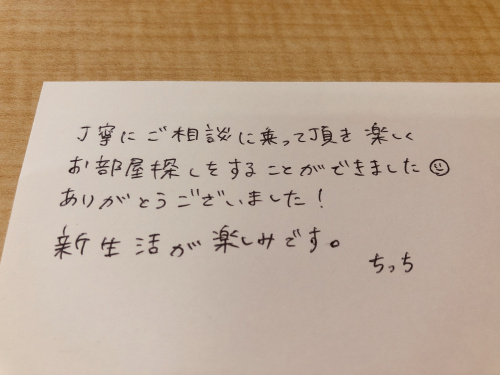 丁寧にご相談に乗って頂き楽しく
お部屋探しをすることができました☺
ありがとうございました!
新生活が楽しみです。
ちっち